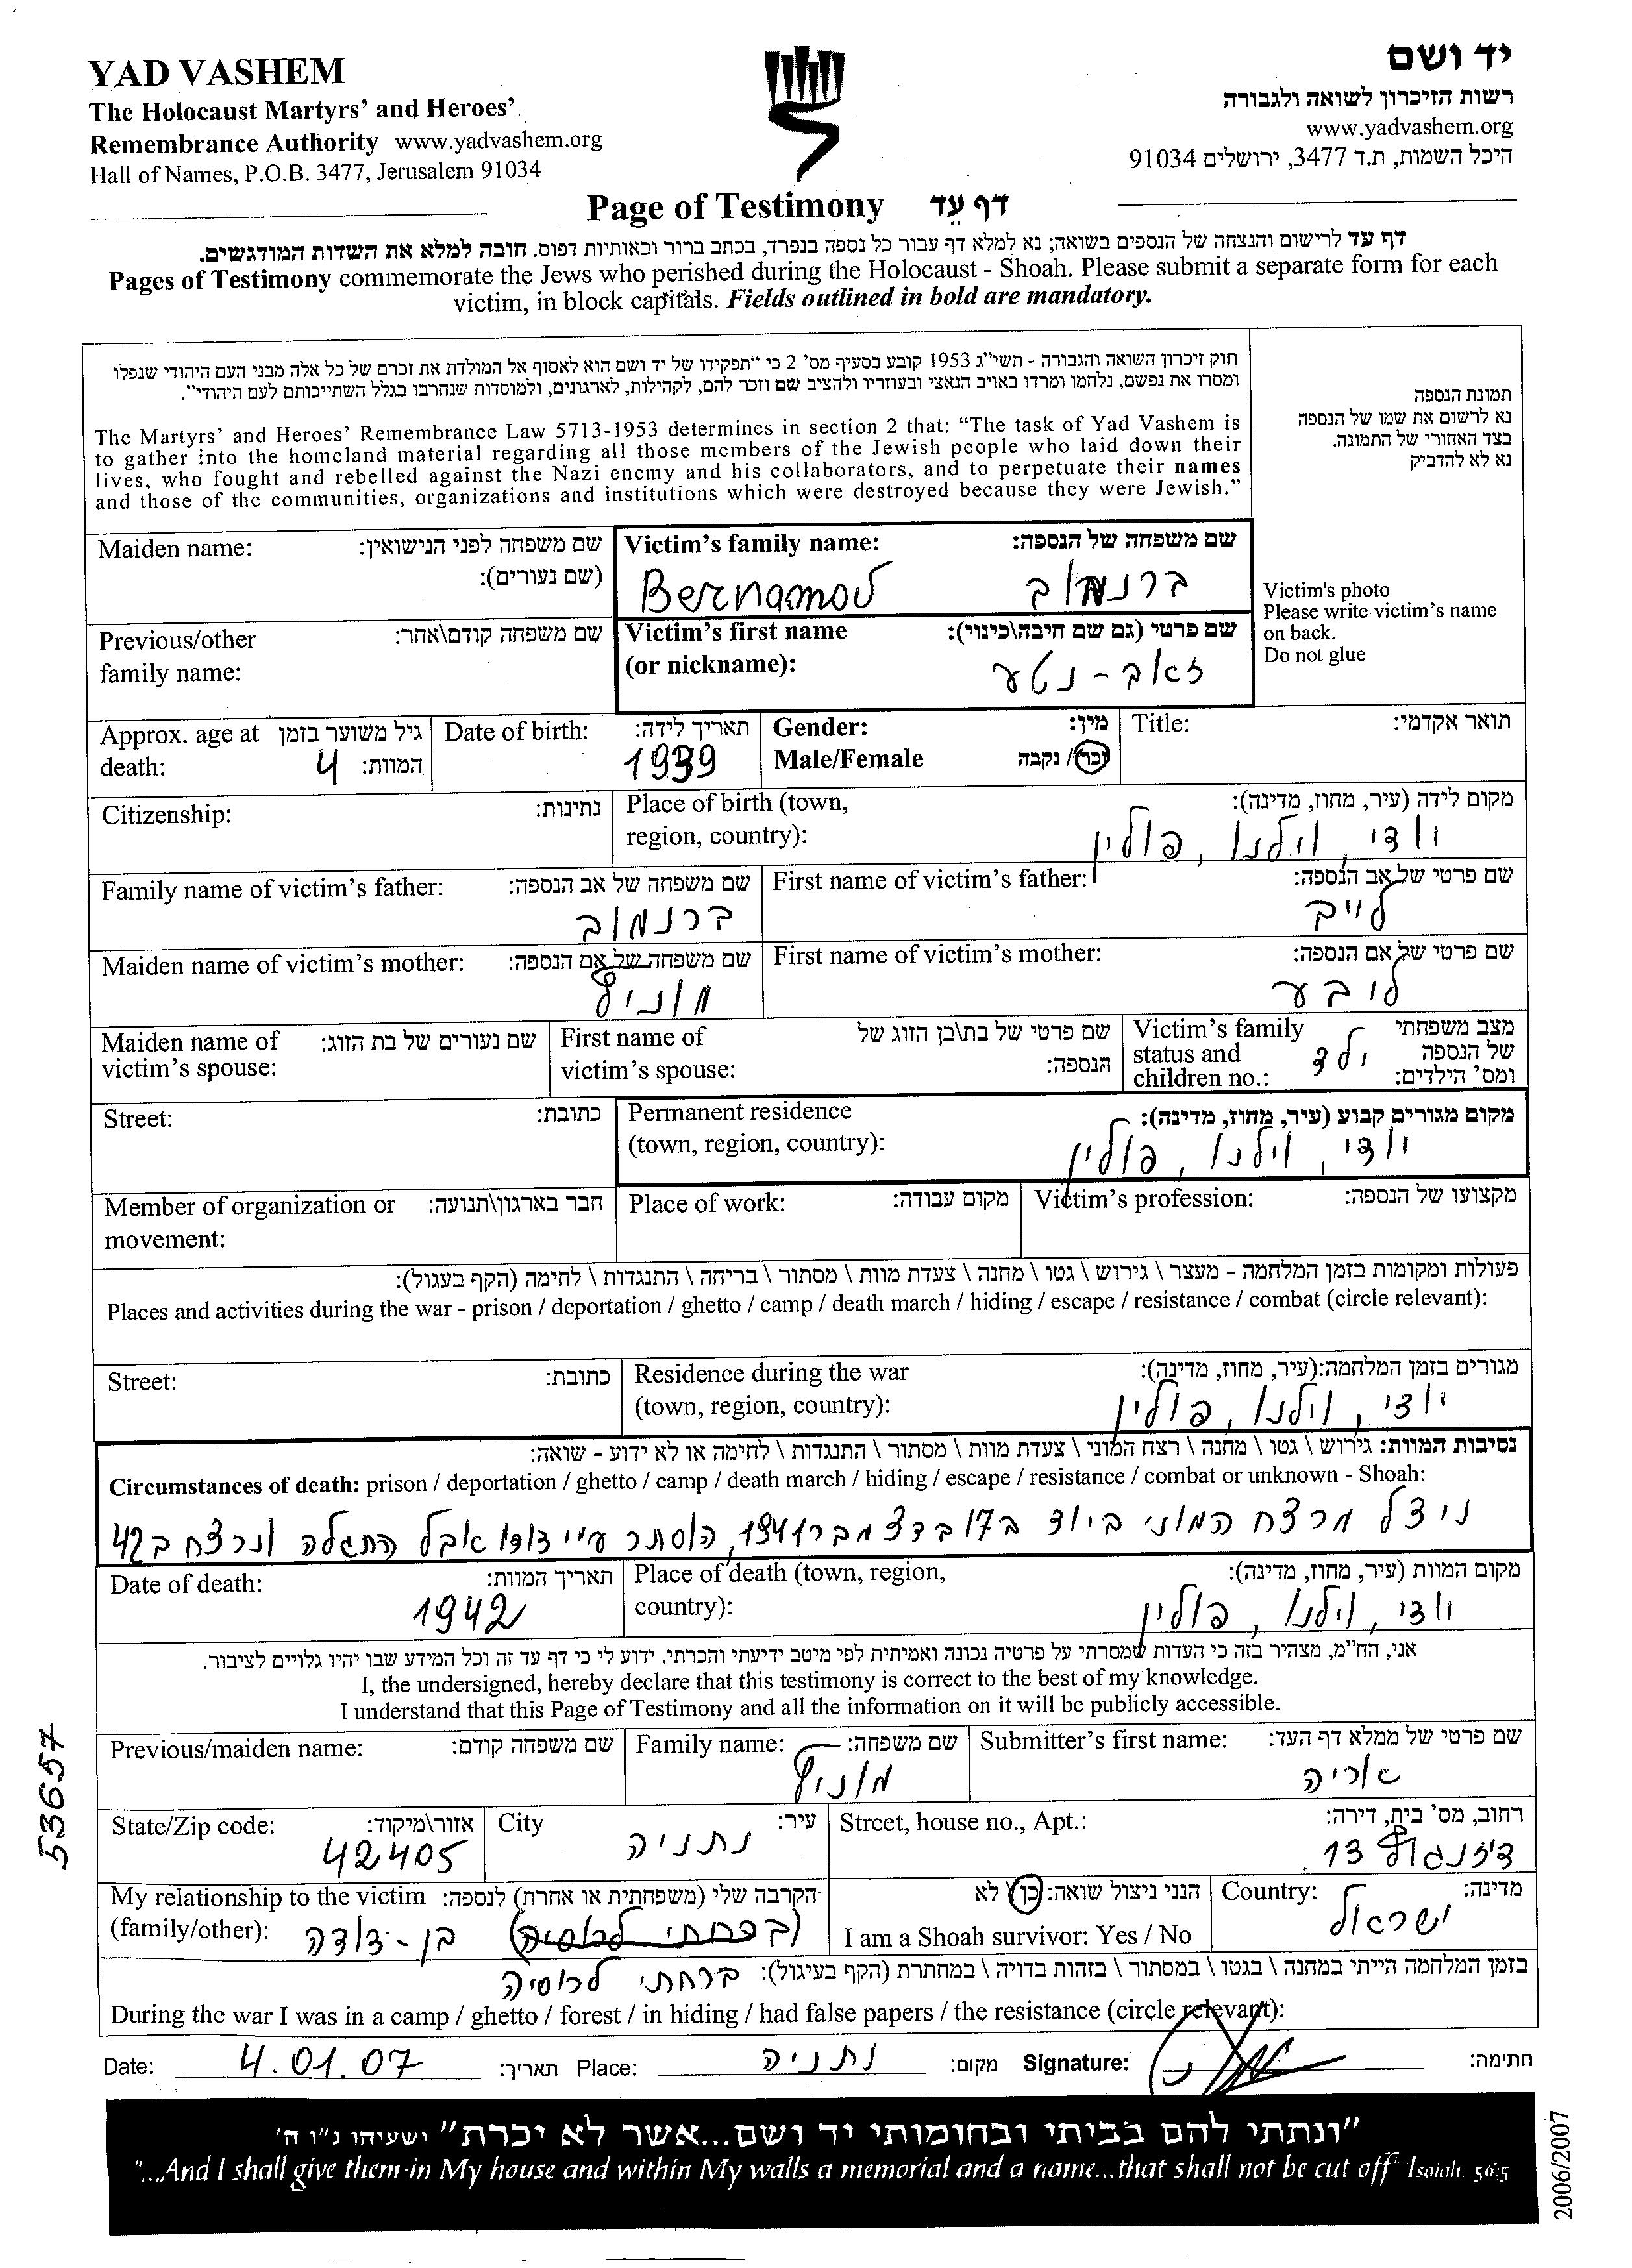 YAD VASHEM
The Holocaust Martyrs' and Heroes'
Remembrance Authority www.yadvashem.org
Hall of Names, P.O.B. 3477, Jerusalem 91034
יד ושם
רשות הזיכרון לשואה ולגבורה
www.yadvashem.org
היכל השמות, ת.ד 3477, ירושלים 91034
Page of Testimony דף עֵד
דף עד לרישום והנצחה של הנספים בשואה; נא למלא דף עבור כל נספה בנפרד, בכתב ברור ובאותיות דפוס. חובה למלא את השדות המודגשים.
Pages of Testimony commemorate the Jews who perished during the Holocaust - Shoah. Please submit a separate form for each
victim, in block capitals. Fields outlined in bold are mandatory.
חוק זיכרון השואה והגבורה - תשי"ג 1953 קובע בסעיף מס' 2 כי "תפקידו של יד ושם הוא לאסוף אל המולדת את זכרם של כל אלה מבני העם היהודי שנפלו
ומסרו את נפשם, נלחמו ומרדו באויב הנאצי ובעוזריו ולהציב שם וזכר להם, לקהילות, לארגונים, ולמוסדות שנחרבו בגלל השתייכותם לעם היהודי".
The Martyrs' and Heroes' Remembrance Law 5713-1953 determines in section 2 that: "The task of Yad Vashem is
to gather into the homeland material regarding all those members of the Jewish people who laid down their
lives, who fought and rebelled against the Nazi enemy and his collaborators, and to perpetuate their names
and those of the communities, organizations and institutions which were destroyed because they were Jewish."
תמונת הנספה
נא לרשום את שמו של הנספה
בצד האחורי של התמונה.
נא לא להדביק
Victim's photo
Please write victim's name
on back.
Do not glue
Maiden name: שם משפחה לפני הנישואין:
(שם נעורים):
Victim's family name: שם משפחה של הנספה:
Bernamov ברנמוב
Previous/other שם משפחה קודם\אחר:
family name:
Victim's first name שם פרטי (גם שם חיבה\כינוי):
(or nickname): זאב-נטע
Approx. age at גיל משוער בזמן
death: 4 המוות:
Date of birth: תאריך לידה:
1939
Gender: מין:
Male/Female זכר/ נקבה
Title: תואר אקדמי:
Citizenship: נתינות:
Place of birth (town, מקום לידה (עיר, מחוז, מדינה):
region, country): יודי, וילנו, פולין
Family name of victim's father: שם משפחה של אב הנספה:
ברנמוב
First name of victim's father: שם פרטי של אב הנספה:
לייב
Maiden name of victim's mother: שם משפחה של אם הנספה:
מוניץ
First name of victim's mother: שם פרטי של אם הנספה:
ליבע
Maiden name of שם נעורים של בת הזוג:
victim's spouse:
First name of שם פרטי של בת\בן הזוג של
victim's spouse: הנספה:
Victim's family מצב משפחתי
status and של הנספה
children no.: ומס' הילדים:
ילד
Street: כתובת:
Permanent residence מקום מגורים קבוע (עיר, מחוז, מדינה):
(town, region, country): יודי, וילנו, פולין
Member of organization or חבר בארגון\תנועה:
movement:
Place of work: מקום עבודה:
Victim's profession: מקצועו של הנספה:
פעולות ומקומות בזמן המלחמה - מעצר \ גירוש \ גטו \ מחנה \ צעדת מוות \ מסתור \ בריחה \ התנגדות \ לחימה (הקף בעגול):
Places and activities during the war - prison / deportation / ghetto / camp / death march / hiding / escape / resistance / combat (circle relevant):
Street: כתובת:
Residence during the war מגורים בזמן המלחמה:(עיר, מחוז, מדינה):
(town, region, country): יודי, וילנו, פולין
נסיבות המוות: גירוש \ גטו \ מחנה \ רצח המוני \ צעדת מוות \ מסתור \ התנגדות \ לחימה או לא ידוע - שואה:
Circumstances of death: prison / deportation / ghetto / camp / death march / hiding / escape / resistance / combat or unknown - Shoah:
ניצל מרצח המוני ביוד ב17 בדצמבר 1941, הוסתר ע"י דודו אבל התגלה ונרצח ב42
Date of death: תאריך המוות:
1942
Place of death (town, region, מקום המוות (עיר, מחוז, מדינה):
country): יודי, וילנו, פולין
אני, הח"מ, מצהיר בזה כי העדות שמסרתי על פרטיה נכונה ואמיתית לפי מיטב ידיעתי והכרתי. ידוע לי כי דף עד זה וכל המידע שבו יהיו גלויים לציבור.
I, the undersigned, hereby declare that this testimony is correct to the best of my knowledge.
I understand that this Page of Testimony and all the information on it will be publicly accessible.
Previous/maiden name: שם משפחה קודם:
Family name: שם משפחה:
מוניץ
Submitter's first name: שם פרטי של ממלא דף העד:
אריה
State/Zip code: אזור\מיקוד:
42405
City עיר:
נתניה
Street, house no., Apt.: רחוב, מס' בית, דירה:
דיזנגוף 13
My relationship to the victim הקרבה שלי (משפחתית או אחרת) לנספה:
(family/other): בן-דודה (ברחתי לרוסיה)
הנני ניצול שואה: כן \ לא
I am a Shoah survivor: Yes / No
Country: מדינה:
ישראל
בזמן המלחמה הייתי במחנה \ בגטו \ במסתור \ בזהות בדויה \ במחתרת (הקף בעיגול): ברחתי לרוסיה
During the war I was in a camp / ghetto / forest / in hiding / had false papers / the resistance (circle relevant):
Date: 4.01.07 תאריך: Place: נתניה מקום: Signature: חתימה:
"ונתתי להם בביתי ובחומותי יד ושם...אשר לא יכרת" ישעיהו נ"ו ה'
"...And I shall give them in My house and within My walls a memorial and a name...that shall not be cut off" Isaiah. 56:5
53657
2006/2007